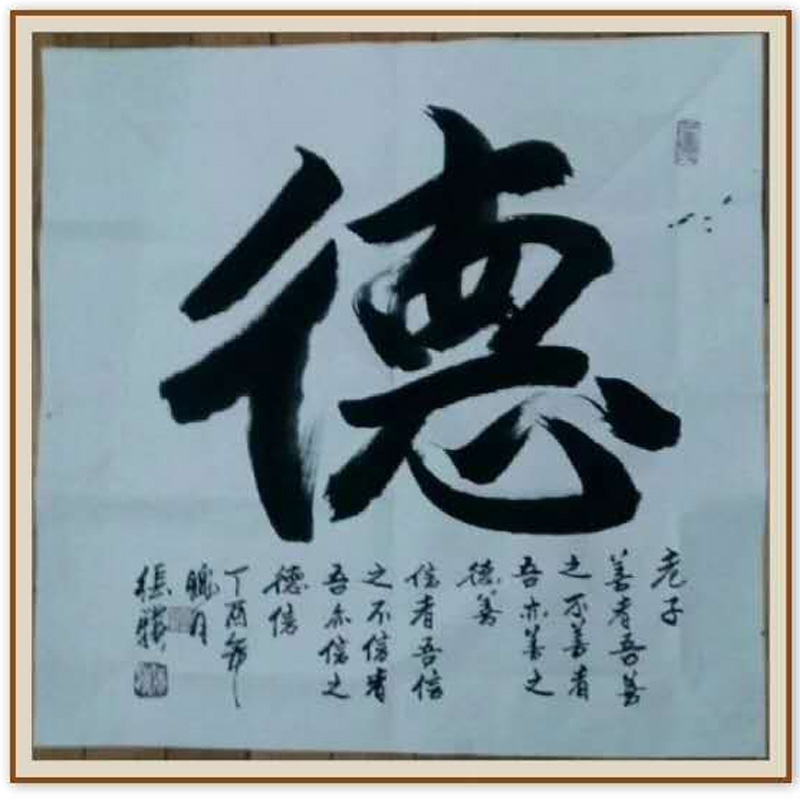 德
老子
善者吾善
之不善者
吾亦善之
德善
信者吾信
之不信者
吾亦信之
德信
丁酉年
月
張